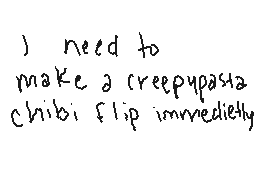 I need to
make a creepypasta
chibi flip immedietly